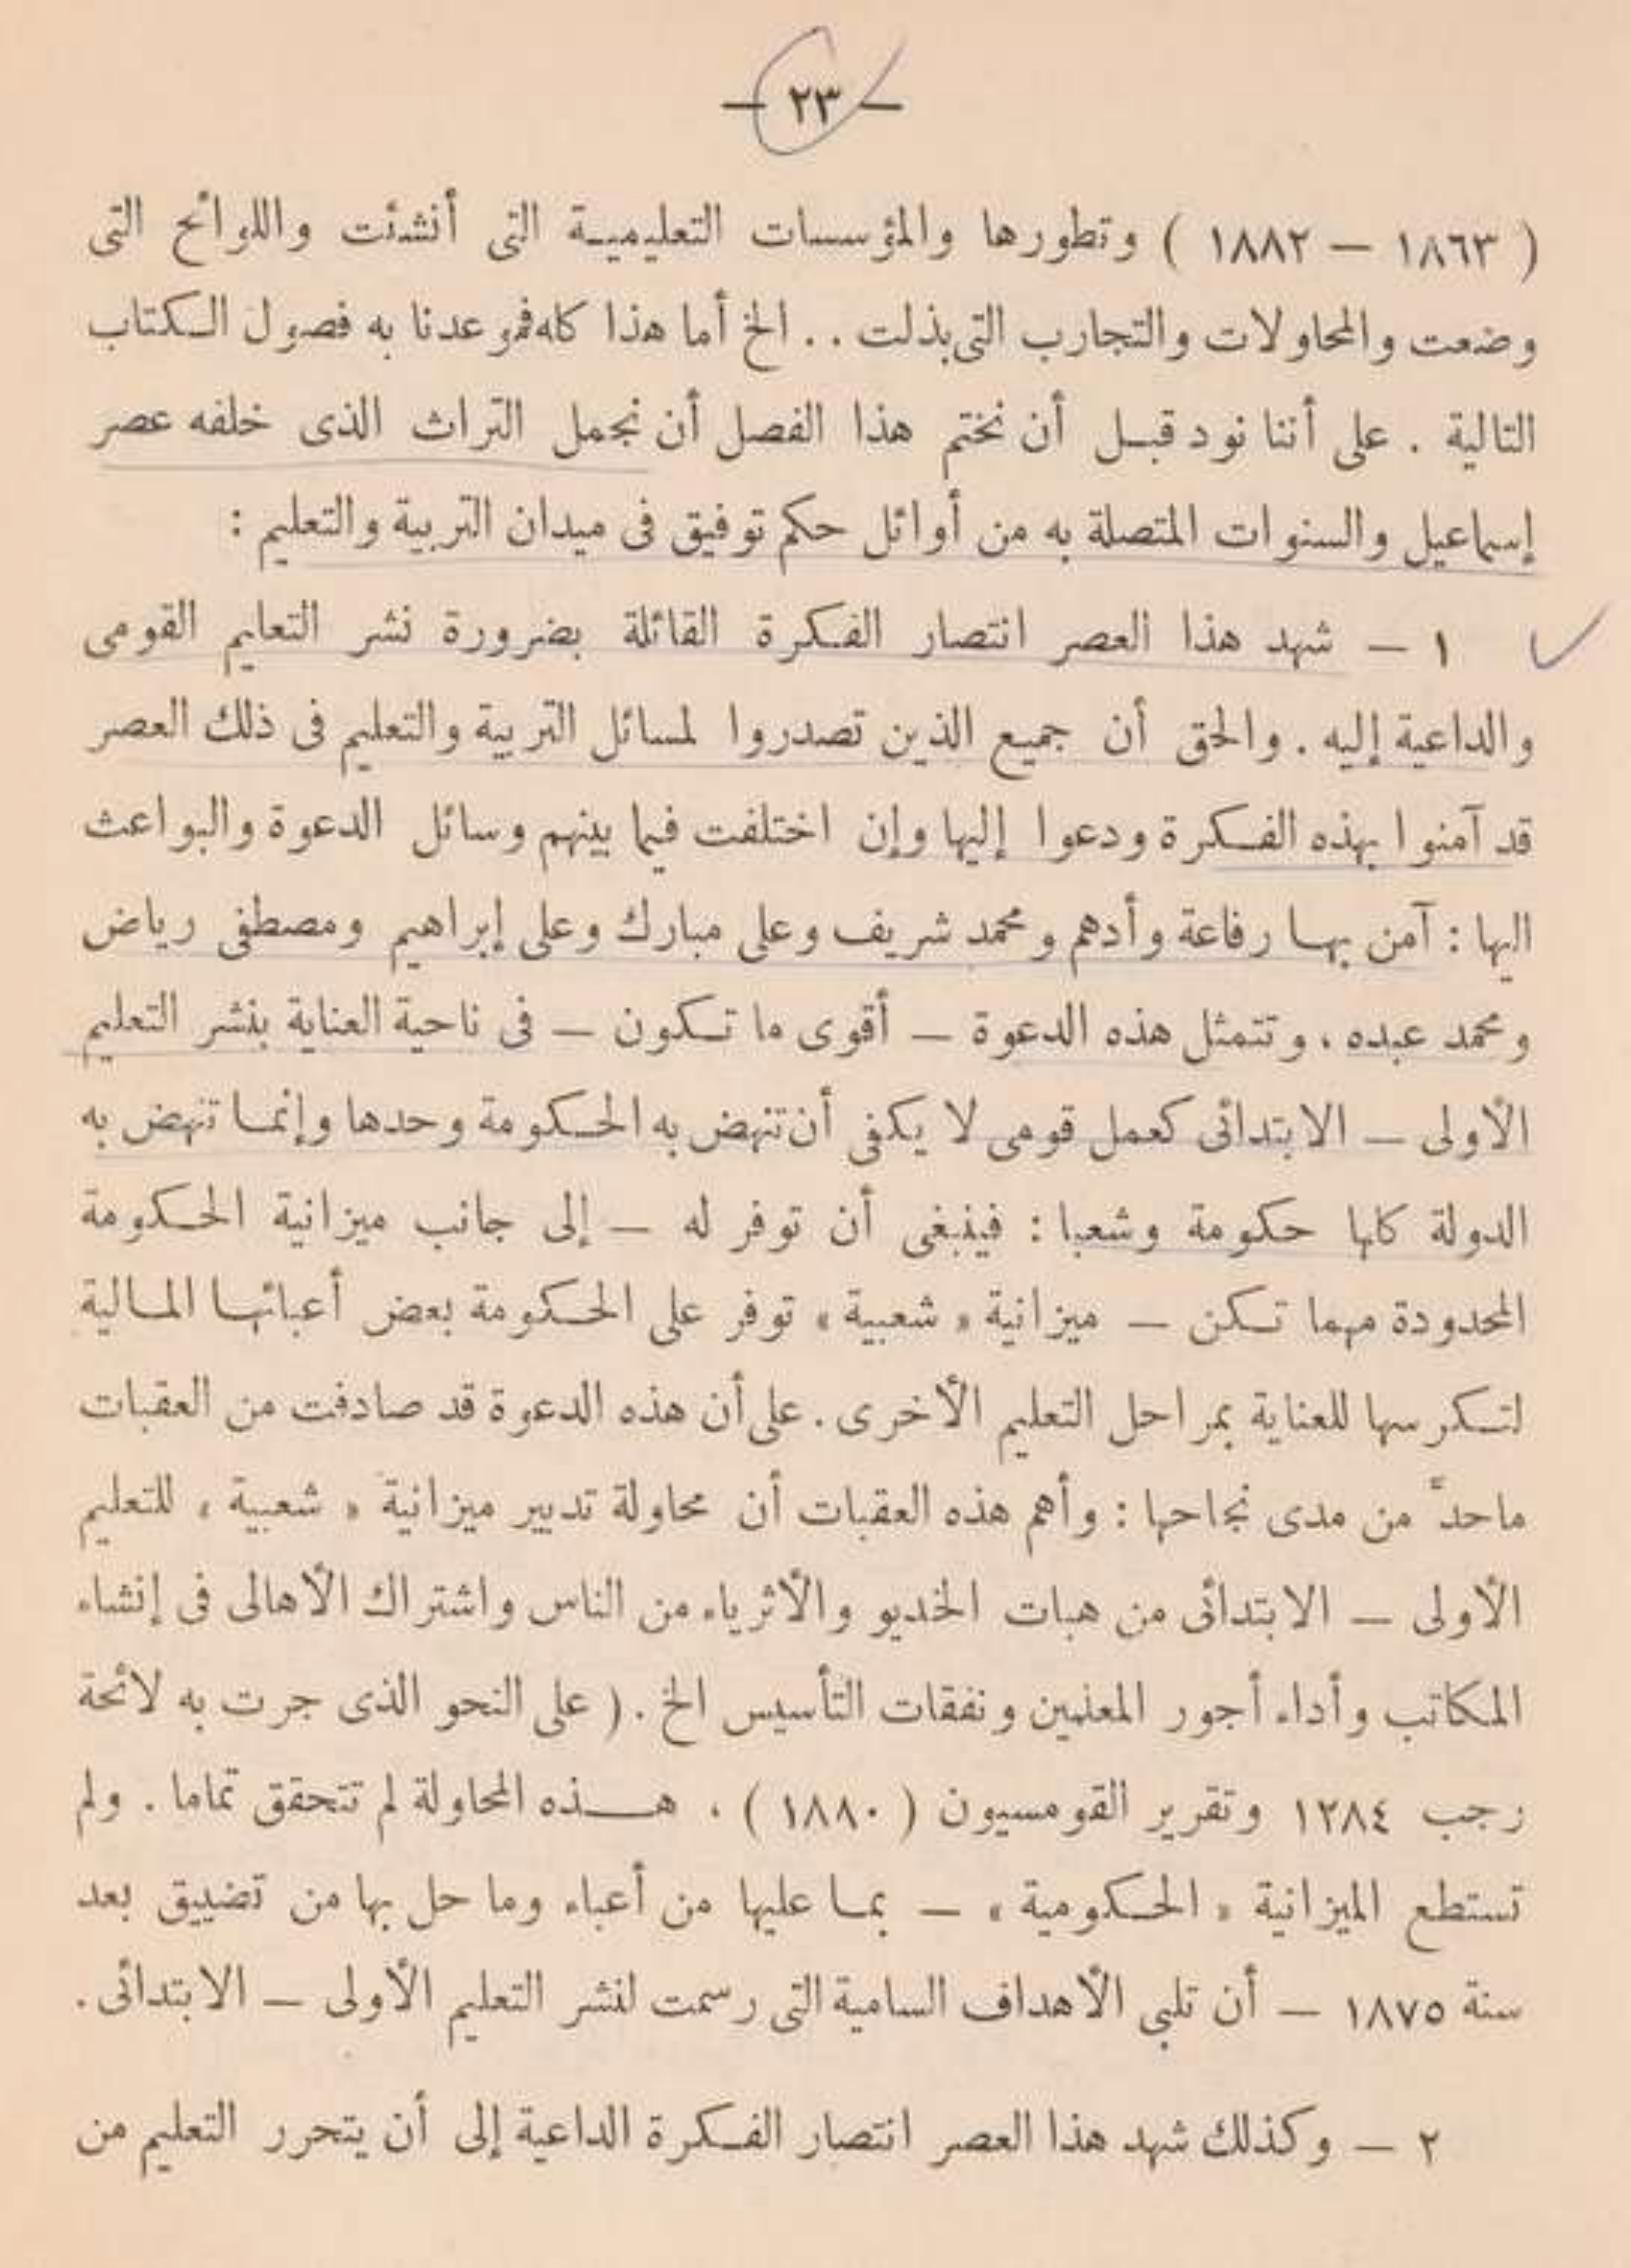 — ٢٣ —
( ١٨٦٣ — ١٨٨٢ ) وتطورها والمؤسسات التعليمية التى أنشئت واللوائح التى
وضعت والمحاولات والتجارب التى بذلت . . الخ أما هذا كله فموعدنا به فصول الكتاب
التالية . على أننا نود قبل أن نختم هذا الفصل أن نجمل التراث الذى خلفه عصر
إسماعيل والسنوات المتصلة به من أوائل حكم توفيق فى ميدان التربية والتعليم :
١ — شهد هذا العصر انتصار الفكرة القائلة بضرورة نشر التعليم القومى
والداعية إليه . والحق أن جميع الذين تصدروا لمسائل التربية والتعليم فى ذلك العصر
قد آمنوا بهذه الفكرة ودعوا إليها وإن اختلفت فيما بينهم وسائل الدعوة والبواعث
اليها : آمن بها رفاعة وأدهم ومحمد شريف وعلى مبارك وعلى إبراهيم ومصطفى رياض
ومحمد عبده ، وتتمثل هذه الدعوة — أقوى ما تكون — فى ناحية العناية بنشر التعليم
الأولى — الابتدائى كعمل قومى لا يكفى أن تنهض به الحكومة وحدها وإنما تنهض به
الدولة كلها حكومة وشعبا : فينبغى أن توفر له — إلى جانب ميزانية الحكومة
المحدودة مهما تكن — ميزانية « شعبية » توفر على الحكومة بعض أعبائها المالية
لتكرسها للعناية بمراحل التعليم الأخرى . على أن هذه الدعوة قد صادفت من العقبات
ماحدَّ من مدى نجاحها : وأهم هذه العقبات أن محاولة تدبير ميزانية « شعبية » للتعليم
الأولى — الابتدائى من هبات الخديو والأثرياء من الناس واشتراك الأهالى فى إنشاء
المكاتب وأداء أجور المعلمين ونفقات التأسيس الخ . ( على النحو الذى جرت به لائحة
رجب ١٢٨٤ وتقرير القومسيون ( ١٨٨٠ ) ، هذه المحاولة لم تتحقق تماما . ولم
تستطع الميزانية « الحكومية » — بما عليها من أعباء وما حل بها من تضييق بعد
سنة ١٨٧٥ — أن تلبى الأهداف السامية التى رسمت لنشر التعليم الأولى — الابتدائى .
٢ — وكذلك شهد هذا العصر انتصار الفكرة الداعية إلى أن يتحرر التعليم من